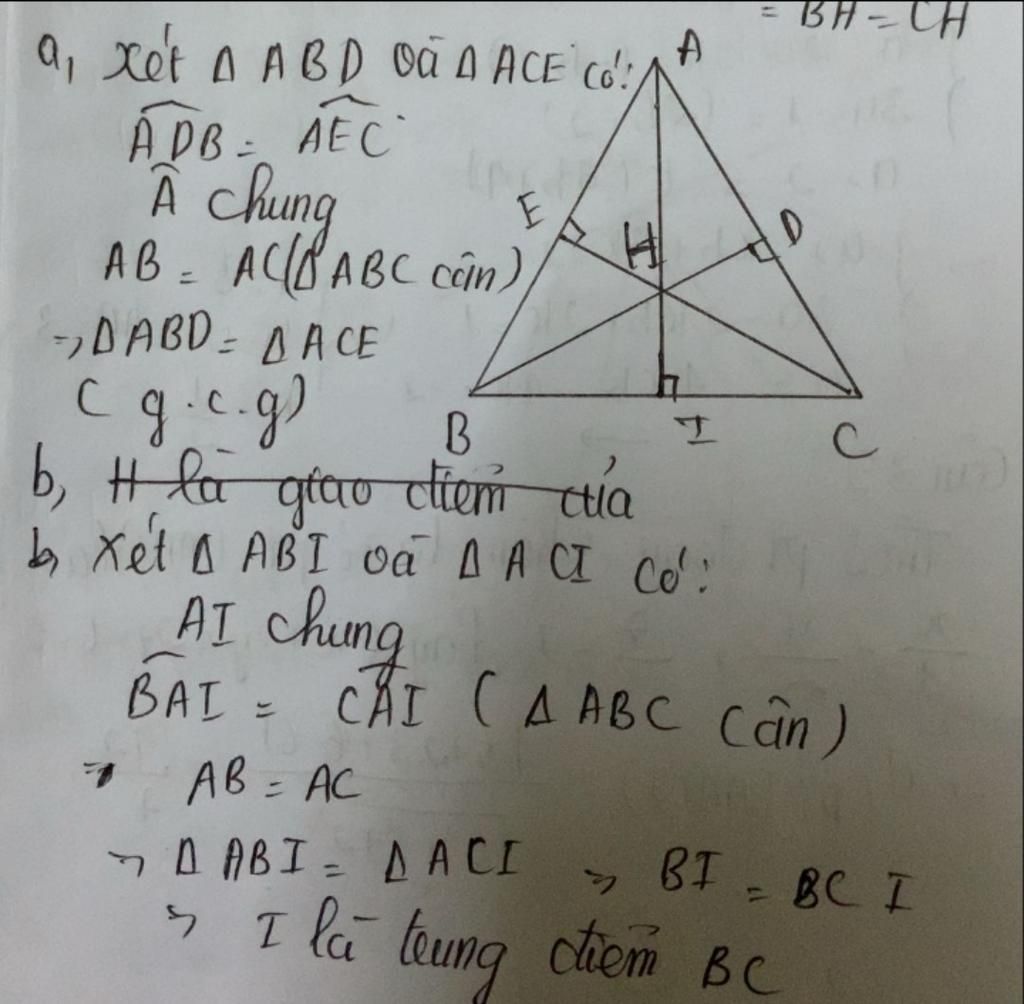 = BH = CH
a, Xét Δ ABD và Δ ACE có:
A
\widehat{ADB} = \widehat{AEC}
Â chung
E
D
H
AB = AC (Δ ABC cân)
⇒ Δ ABD = Δ ACE
( g.c.g)
B
I
C
b, H là giao điểm của
b, Xét Δ ABI và Δ ACI có:
AI chung
\widehat{BAI} = \widehat{CAI} ( Δ ABC cân )
⇒ AB = AC
⇒ Δ ABI = Δ ACI ⇒ BI = BC I
⇒ I là trung điểm BC